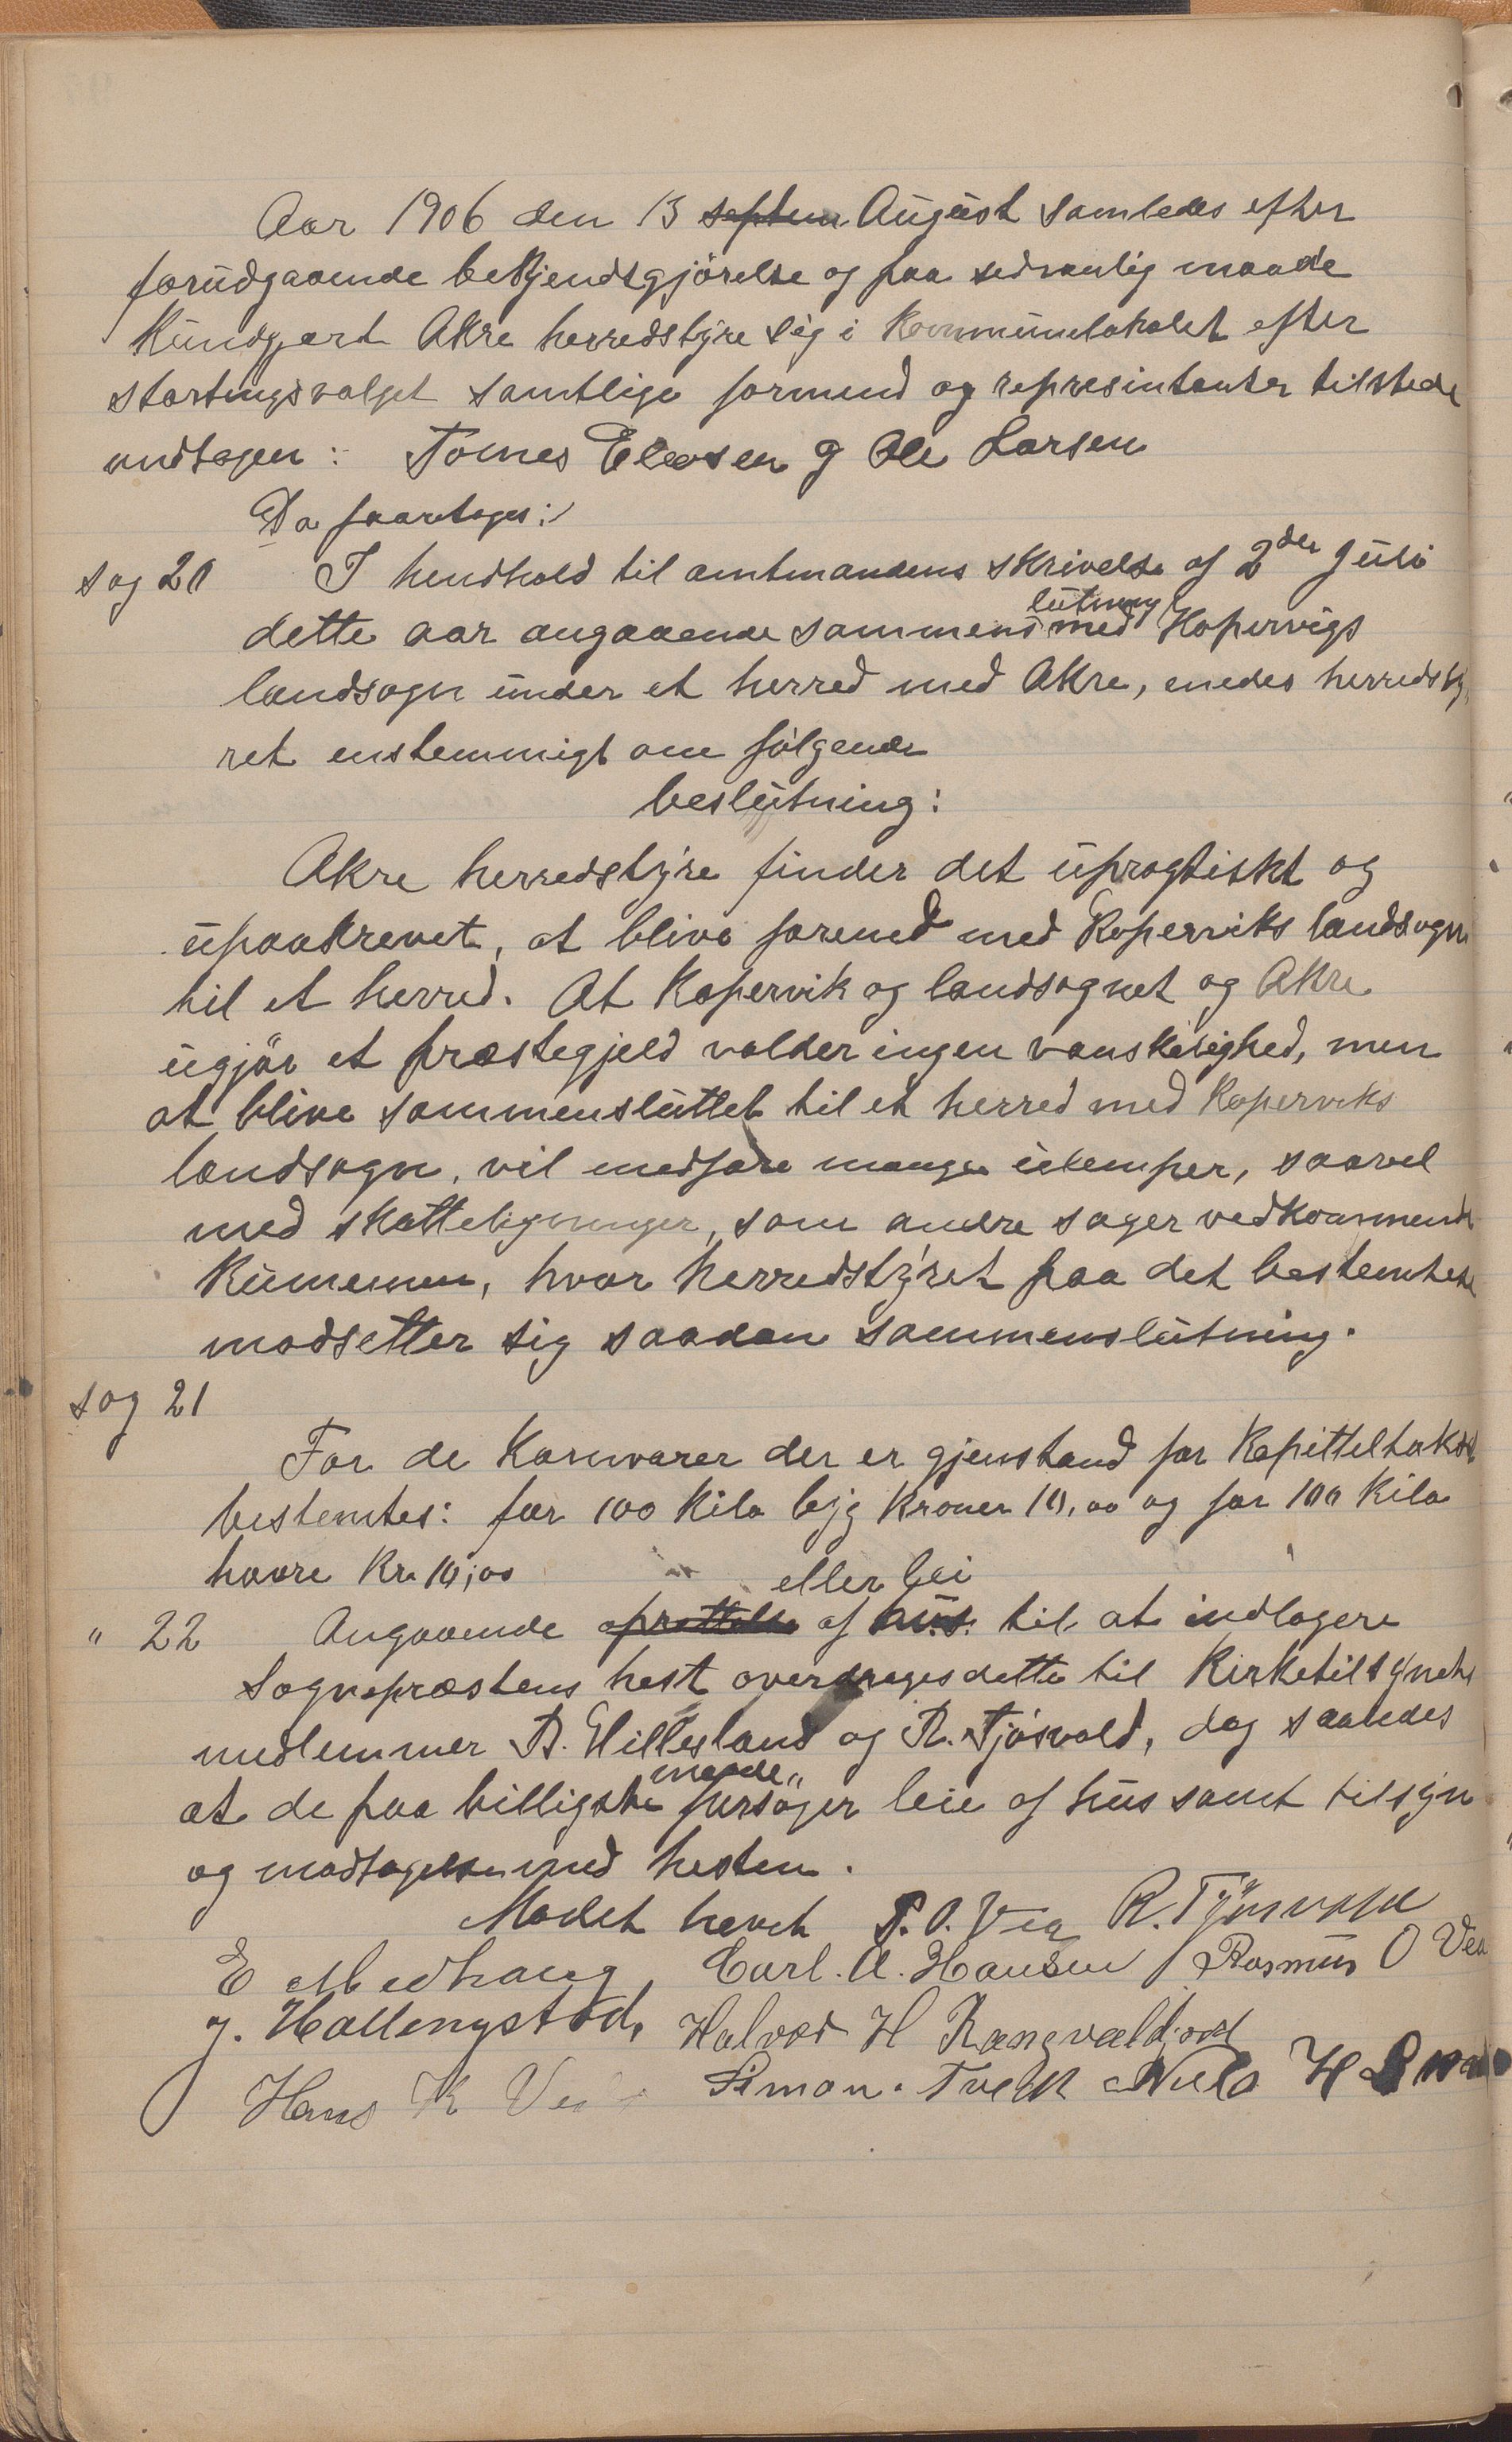 Aar 1906 den 13 septem August samledes efter
forudgaaende bekjendsgjörelse og paa sedvanlig maade
Kundgjort Akre herredstyre sig i Kommunelokalet efter
stortingsvalget samtlige formend og represintanter tilstede
undtagen: Tomes Eliasen og Ole Larsen
Da foartoges:/
sag 20 I hendhold til amtmandens skrivelse af 2den Juli
dette aar angaaende sammenslutning med Kopervigs
landsogn under et herred med Akre, enedes herredsty
ret enstemmigt om følgende
beslutning:
Akre herredstyre finder det upragtiskt og
upaakrevet, at blive forened med Koperviks landsogn
til et herred. At Kopervik og landsognet og Akre
ugjör et præstegjeld volder ingen vanskelighed, men
at blive sammensluttet til et herred med Koperviks
landsogn, vil medføre mange ulemper, saavel
med skatteligninger, som andre sager vedkommende
Kumunen, hvor herredstyret paa det bestemteste
modsetter sig saadan sammenslutning.
sag 21
For de Kornvarer der er gjenstand for Kapitteltakst
bestemtes: for 100 Kilo byg Kroner 10,00 og for 100 Kilo
havre Kr. 10,00
" 22 Angaaende oprettelse eller lei af hus. til at indlogere
Sogneprestens hest overdrages dette til Kirketilsynets
medlemmer B. Hillesland og R. Tjösvold, dog saaledes
at de paa billigste maade forsöger leie af hus samt tilsyn
og modtagelse med hesten.
Mødet hevet P. O. Vea R. Tjösvold
E Medhaug, Carl. A. Hansen / Rasmus O Vea
J. Hallengstad, Halvor H Rangvaldjord
Hans K Vea Simon. Tveit Niels H